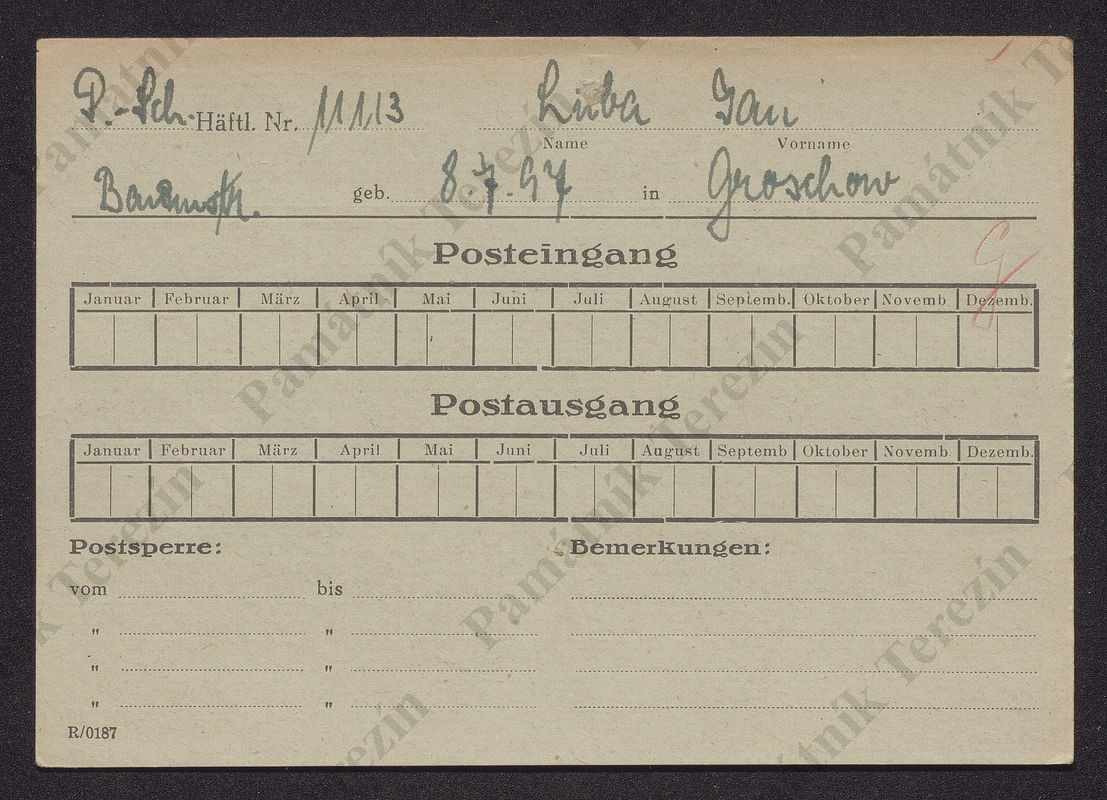 P.-Sch. Häftl. Nr. 11113 Luba Jan
Name Vorname
geb. 8.7.97 in Groschow
Posteingang
Januar Februar März April Mai Juni Juli August Septemb. Oktober Novemb. Dezemb.
Postausgang
Januar Februar März April Mai Juni Juli August Septemb Oktober Novemb Dezemb.
Postsperre: Bemerkungen:
vom bis
" "
" "
" "
R/0187
Památník Terezín